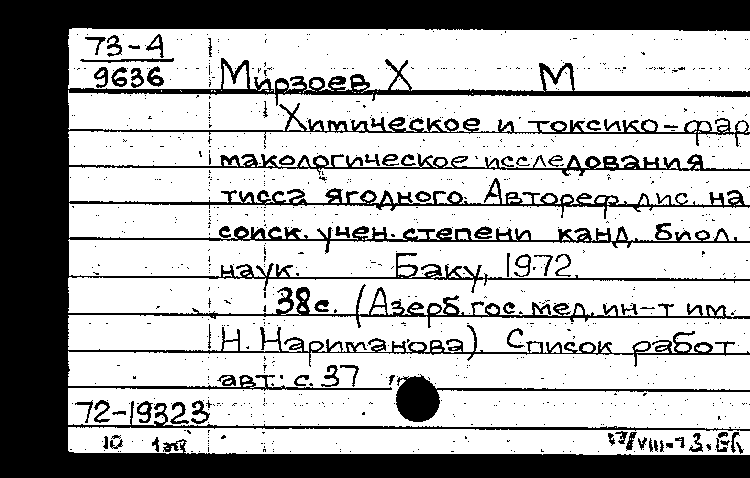 73-4
9636
Мирзоев, Х М
Химическое и токсико-фар
макологическое исследования
тисса ягодного. Автореф. дис. на
соиск. учен. степени канд. биол.
наук. Баку, 1972.
38с. (Азерб. гос. мед. ин-т им.
Н. Нариманова). Список работ
авт: с. 37
72-19323
10